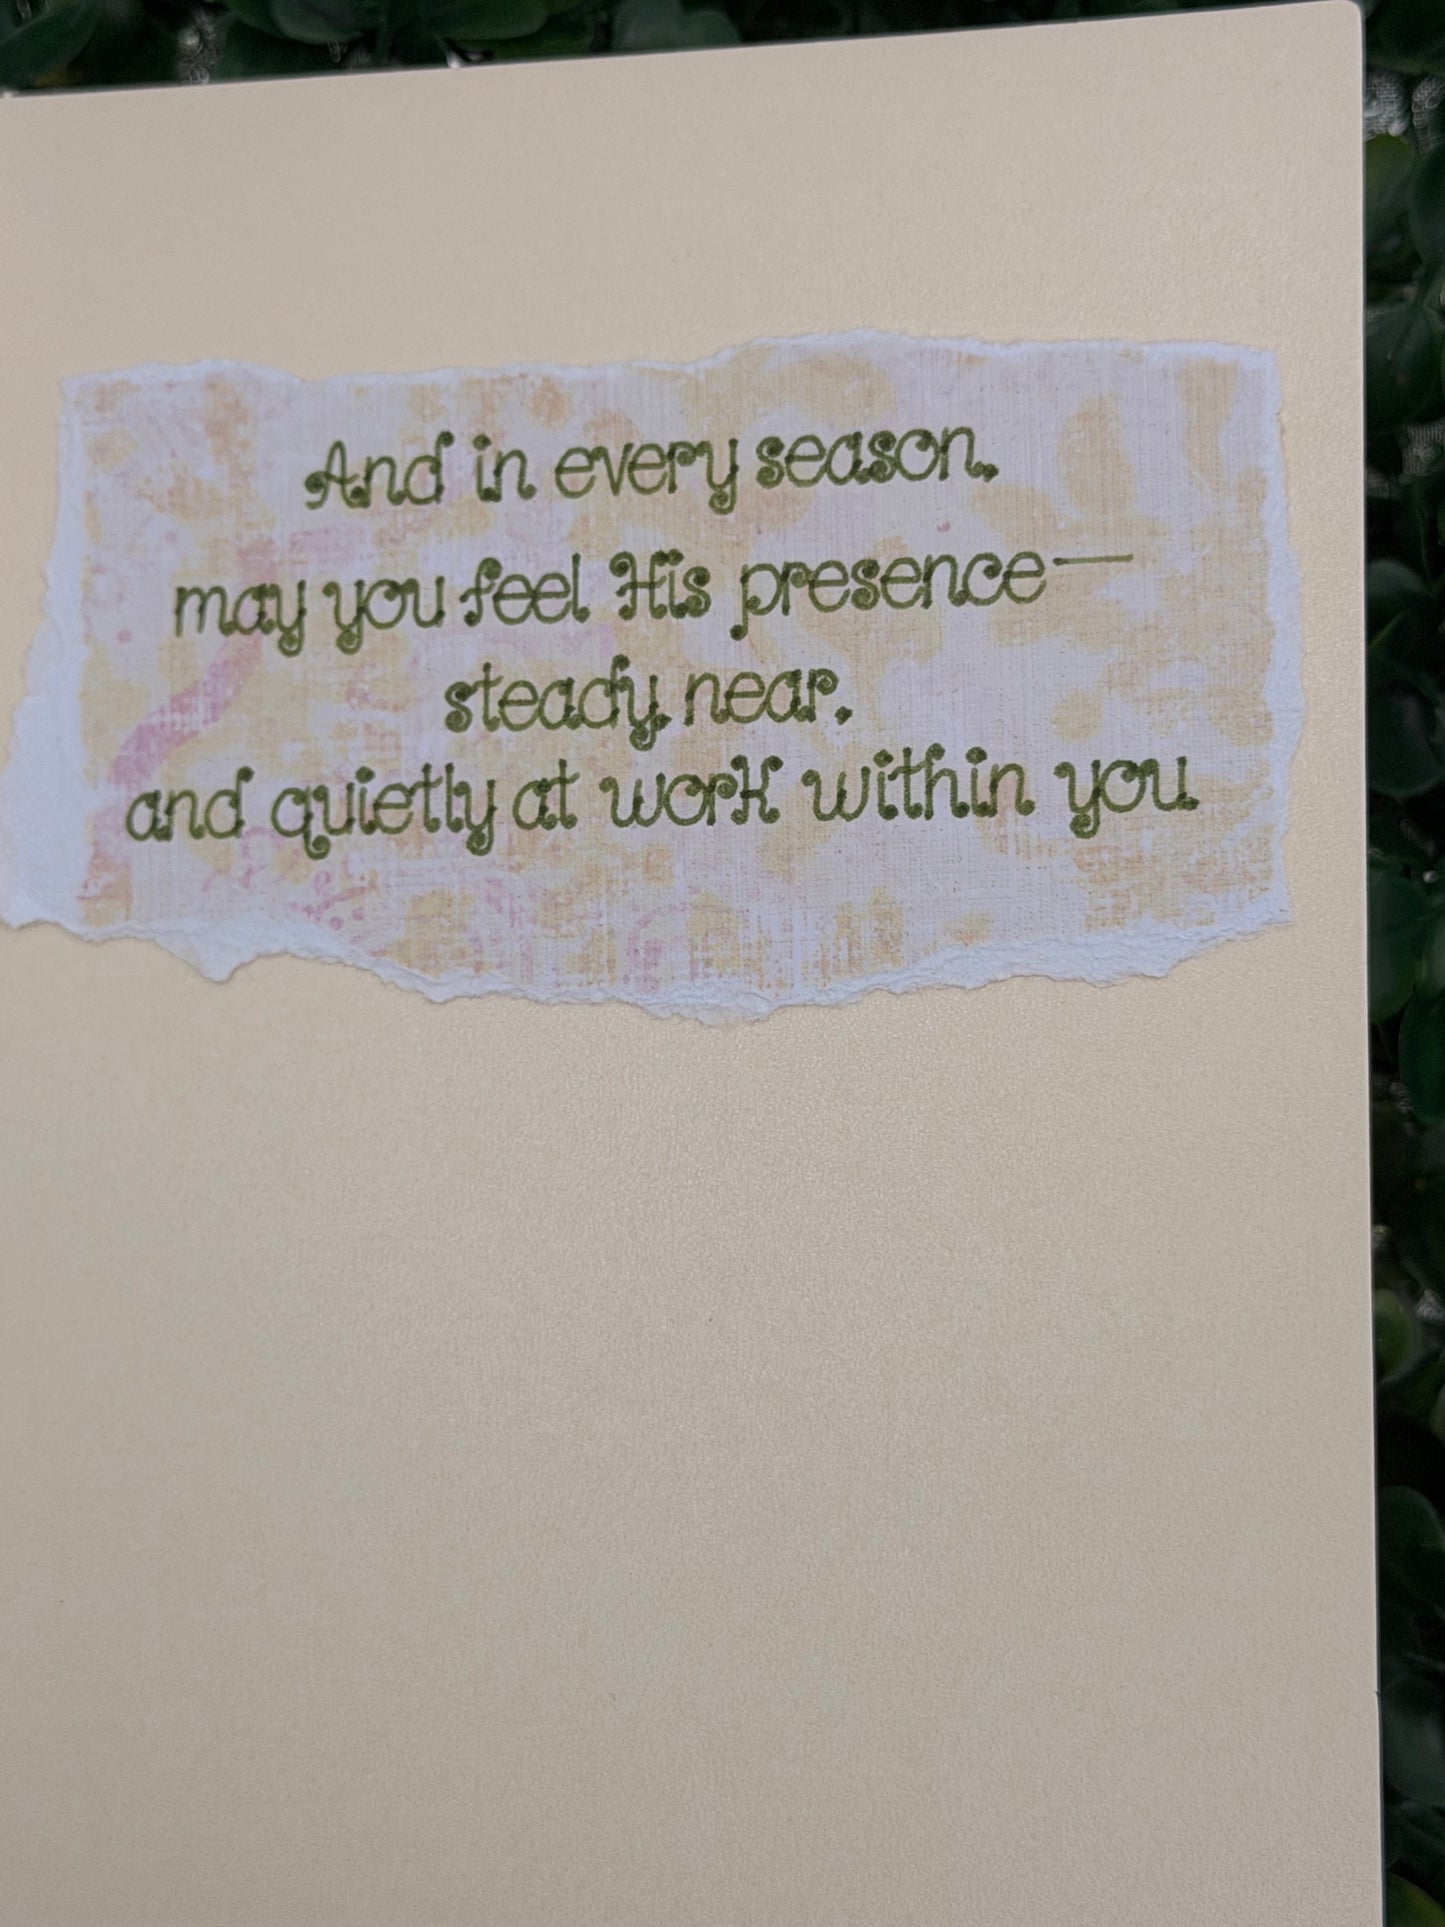 And in every season,
may you feel His presence—
steady, near,
and quietly at work within you.